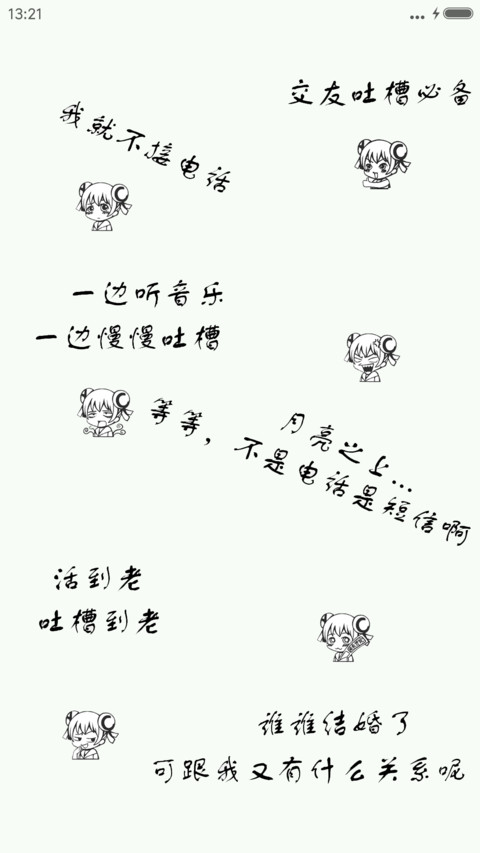 13:21
交友吐槽必备
我就不接电话
一边听音乐
一边慢慢吐槽
月亮之上...
等等，不是电话是短信啊
活到老
吐槽到老
谁谁结婚了
可跟我又有什么关系呢